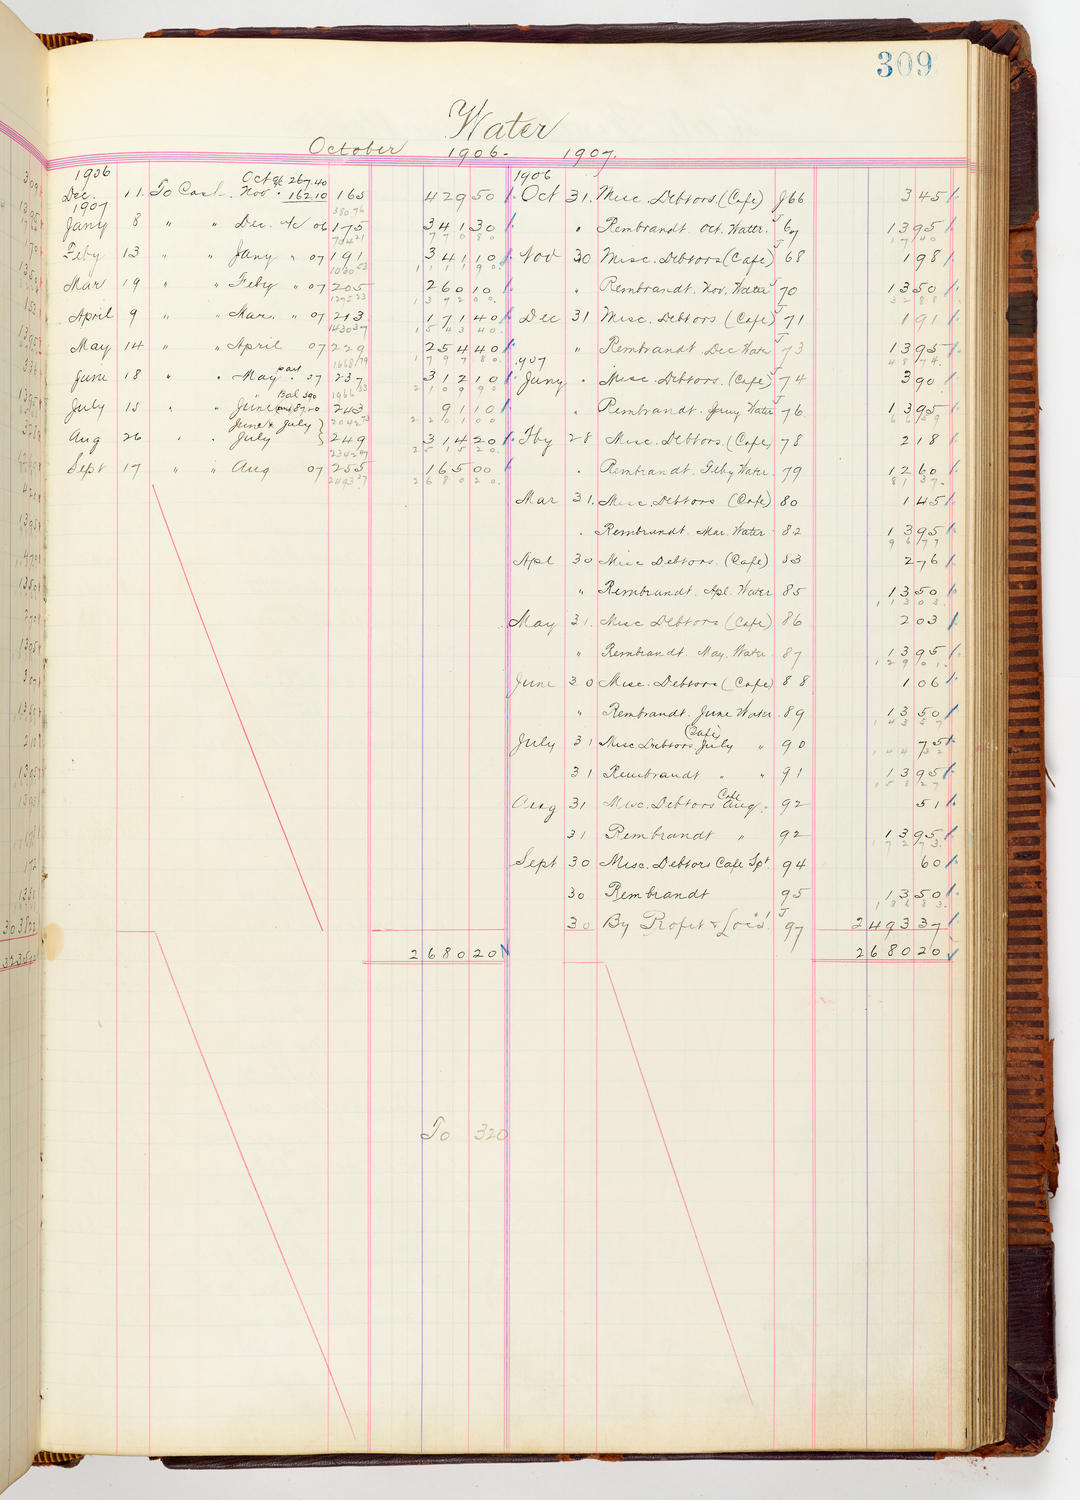 309
Water
October 1906 - 1907.
1906 Oct % 267.40
Dec. 11. To Cash. Nov " 162.10 165 429 50
38076
1907
Jany 8 " " Dec. a/c 06 175 341 30
770 80
Feby 13 " " Jany " 07 191 341 10
1111 90
Mar 19 " " Feby " 07 205 260 10
129523 1392 00
April 9 " " Mar. " 07 213 171 40
143037 1543 40
May 14 " " April 07 229 254 40
1668/79 1797 80
June 18 " " May part 07 237 312 10
2109 90
July 15 " " June 87.20 243 91 10
2201 00
Aug 26 " " June & July 249 314 20
234207 2515 20
Sept 17 " " Aug 07 255 165 00
249337 2680 20
2680 20
To 320
1906
Oct 31. Misc. Debtors. (Cafe) J66 3 45
" Rembrandt. Oct. Water. J67 13 95
17 40
Nov 30 Misc. Debtors (Cafe) J68 1 98
" Rembrandt. Nov. Water J70 13 50
32 88
Dec 31 Misc. Debtors (Cafe) J71 1 91
" Rembrandt Dec Water J73 13 95
48 74
907
Jany " Misc. Debtors. (Cafe) J74 3 90
" Rembrandt. Jany Water J76 13 95
66 59
Fby 28 Misc. Debtors. (Cafe) 78 2 18
" Rembrandt. Feby Water. 79 12 60
81 37
Mar 31. Misc. Debtors (Cafe) 80 1 45
" Rembrandt. Mar. Water. 82 13 95
96 77
Apl 30 Misc Debtors. (Cafe) 83 2 76
" Rembrandt. Apl. Water 85 13 50
113 03
May 31. Misc Debtors (Cafe) 86 2 03
" Rembrandt. May. Water. 87 13 95
129 01
June 30 Misc. Debtors (Cafe) 88 1 06
" Rembrandt. June Water. 89 13 50
143 57
July 31 Misc Debtors. (Cafe) July " 90 75
144 32
31 Rembrandt " " 91 13 95
158 27
Aug 31 Misc. Debtors Cafe Aug. 92 51
31 Rembrandt " 92 13 95
172 73
Sept 30 Misc. Debtors Cafe Spt. 94 60
30 Rembrandt 95 13 50
186 83
30 By Profit & Loss. J97 2493 37
2680 20